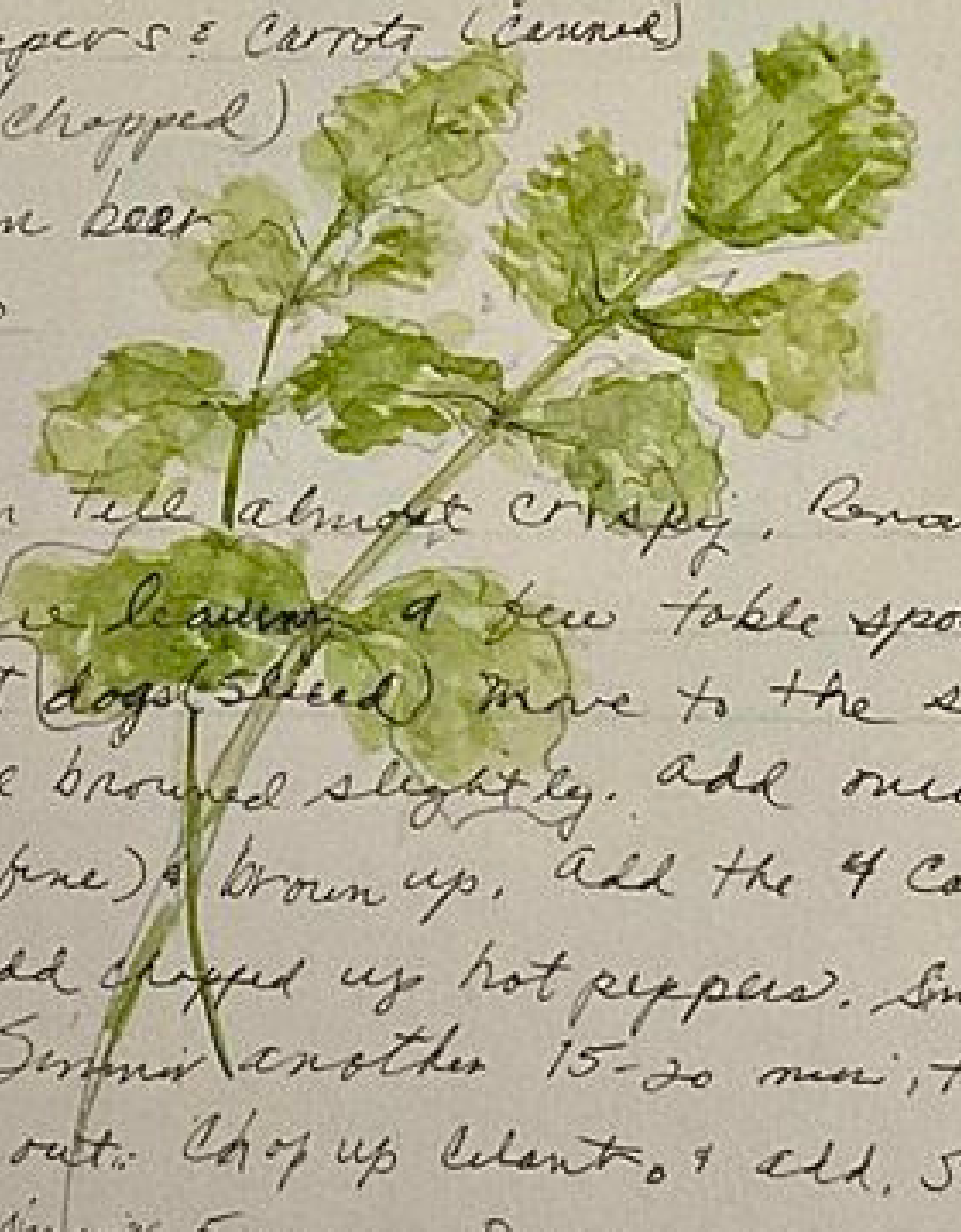 pers & Carrots (Canned)
(chopped)
n beer
n till almost crispy, Remo
ue leaving a few table spo
t dogs (sliced) move to the s
e browned slightly. add oni
fine) & brown up. Add the 4 Ca
dd chopped up hot peppers. Sim
Simmir another 15-20 min, t
out. Chop up Cilantro & add. S